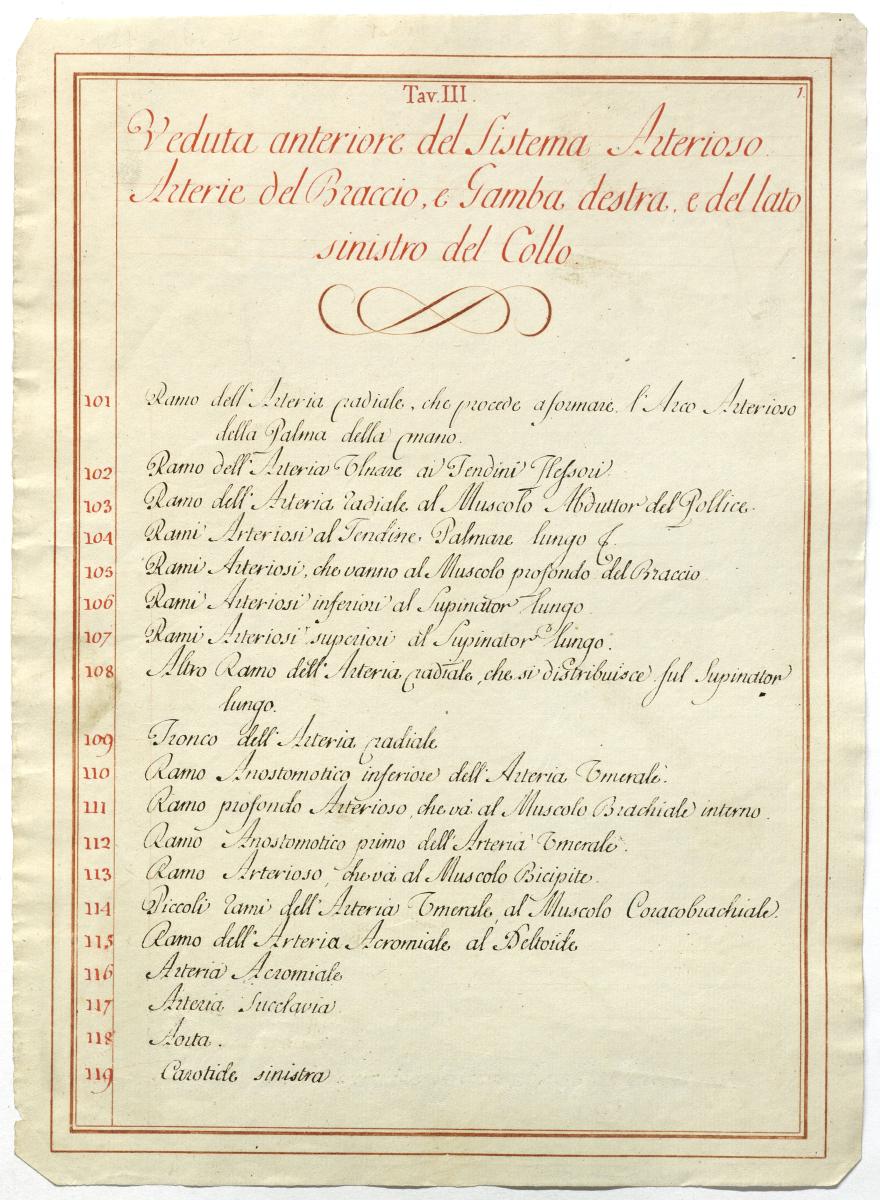 Tav. III.
1.
Veduta anteriore del Sistema Arterioso.
Arterie del Braccio, e Gamba destra, e del lato
sinistro del Collo.
101 Ramo dell'Arteria radiale, che procede a formare l'Arco Arterioso
della Palma della mano.
102 Ramo dell'Arteria Ulnare ai Tendini Flessori.
103 Ramo dell'Arteria radiale al Muscolo Abduttor del Pollice.
104 Rami Arteriosi al Tendine Palmare lungo
105 Rami Arteriosi, che vanno al Muscolo profondo del Braccio
106 Rami Arteriosi inferiori al Supinator lungo
107 Rami Arteriosi superiori al Supinator lungo.
108 Altro Ramo dell'Arteria radiale, che si distribuisce sul Supinator
lungo.
109 Tronco dell'Arteria radiale
110 Ramo Anostomotico inferiore dell'Arteria Umerale.
111 Ramo profondo Arterioso, che vá al Muscolo Brachiale interno.
112 Ramo Anostomotico primo dell'Arteria Umerale.
113 Ramo Arterioso, che vá al Muscolo Bicipite.
114 Piccoli rami dell'Arteria Umerale, al Muscolo Coracobrachiale.
115 Ramo dell'Arteria Acromiale al Deltoide
116 Arteria Acromiale
117 Arteria Succlavia
118 Aorta.
119 Carotide sinistra